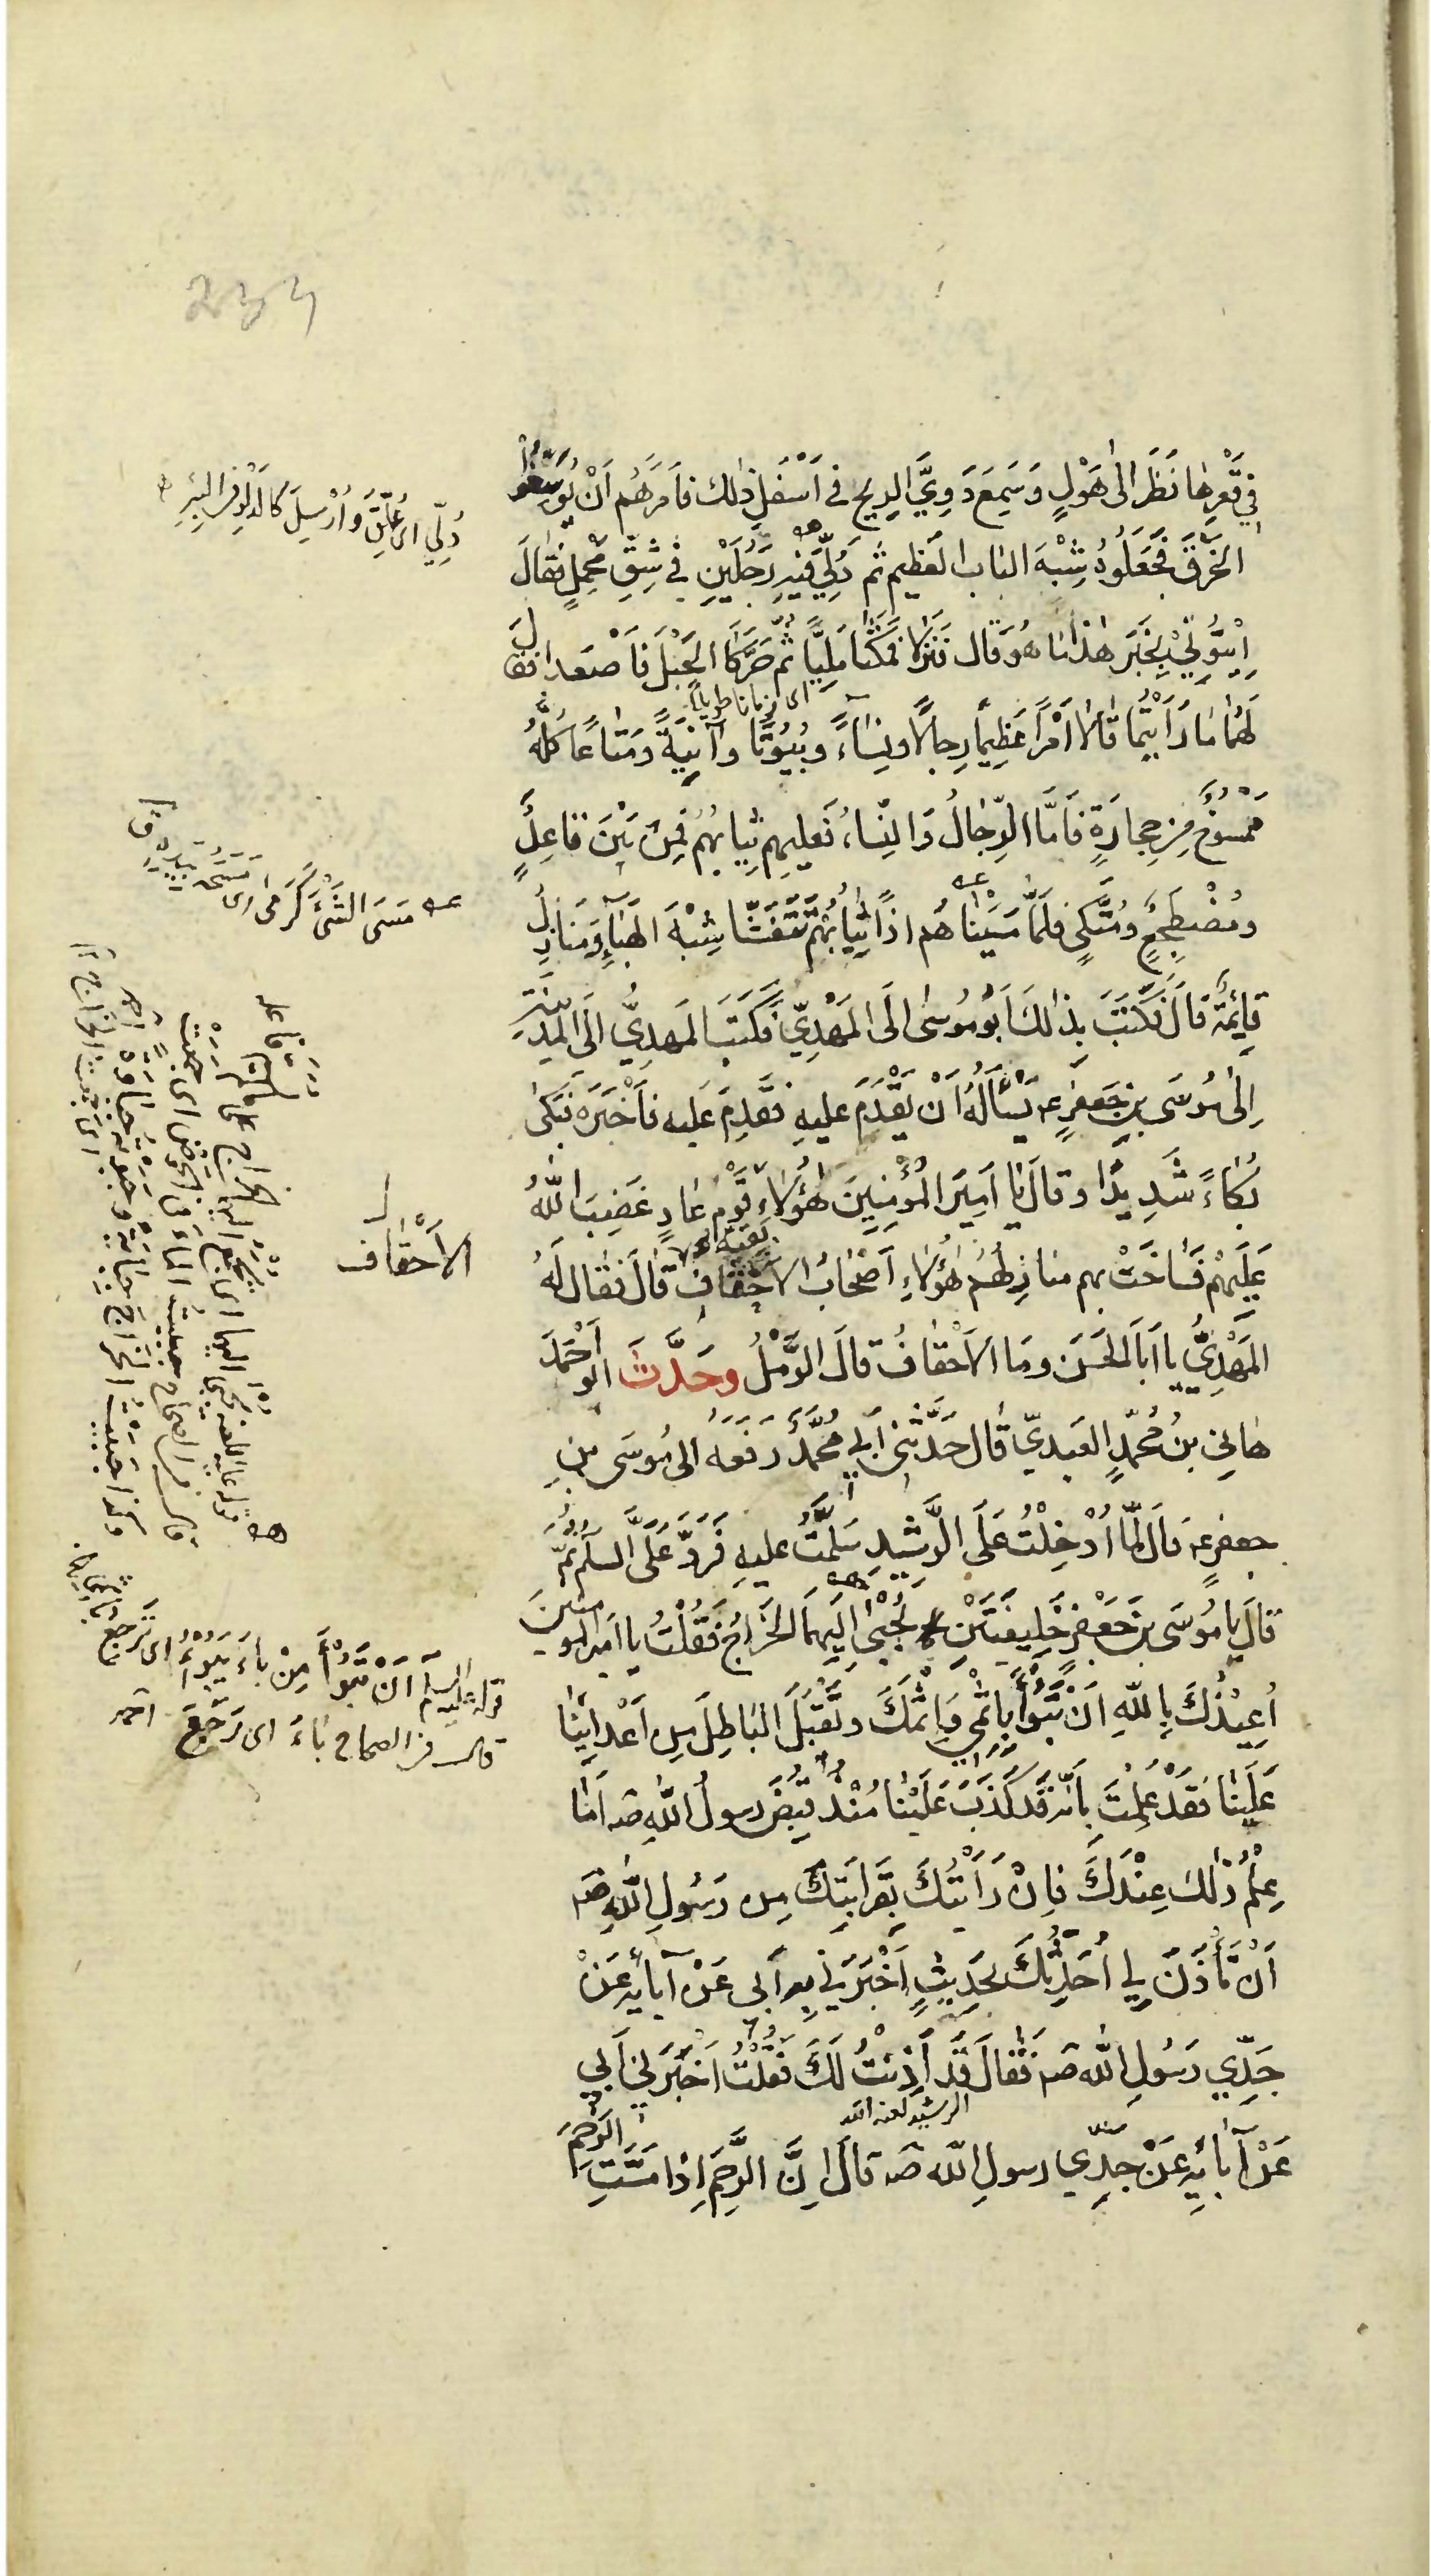 في قَعْرِها نَظَرَ الى هَوْلٍ وَسَمِعَ دَوِيَّ الرِيحِ في اَسْفَلِ ذلك فاَمَرَهُم اَنْ يُوَسِّعُوا
الخَرْقَ فَجَعَلُوهُ شِبْهَ الباب العَظيم ثم دُلِّيَ فيهِ رَجُلَيْنِ في شِقِّ مَحْمِلٍ فقالَ
اِيْتُونِي بِخَبَرِ هذا ما هُوَ قال فَنَزَلا فَمَكَثا مَلِيًّا ثُمّ حَرَّكَا الحَبْلَ فاَصْعَدا فقالَ
اى زمانا طويلًا
لَهُما ما رَاَيْتُما قالا اَمْرًا عَظِيمًا رِجالًا ونِساءً وبُيُوتًا وآنِيَةً ومَتاعًا كلُّهُ
مَمْسُوخٌ مِنْ حِجارَةٍ فاَمَّا الرِّجالُ وَالنِّساءُ فَعليهِم ثِيابُهُم فمِنْ بَيْنَ قاعِدٍ
ومُضْطَجِعٍ ومُتَّكِىءٍ فلَمّا مَسَيْناهُم اذًا ثِيابُهُم تَتَفَتَّتُ شِبْهَ الهَباءِ ومَنازِلُ
قائِمَةٌ قالَ فَكَتَبَ بذلكَ اَبُو مُوسى الَى المَهْدِيِّ فَكَتَبَ المَهدِيُّ الَى المَدِينَةِ
اِلى مُوسَى بنِ جَعفَرٍ ع يَسْأَلُهُ اَنْ يَقْدَمَ عليهِ فقَدِمَ عَليه فاَخْبَرَه فبَكى
بُكاءً شَدِيدًا وقالَ يا اَمِيرَ المُؤْمِنِينَ هؤُلاءِ بَقِيَّةُ قَوْمِ عادٍ غَضِبَ اللّهُ
عَلَيهِمْ فَساخَتْ بهم منازِلُهُم هؤُلاءِ اَصْحابُ الاَحْقافِ قالَ فقال لَهُ
المَهْدِيُّ يا اَبا الحَسَن وما الاَحْقافُ قالَ الرَّمْلُ وحَدَّثَ ابو اَحْمَدَ
هاني بنُ مُحَمّدٍ العَبديّ قال حَدَّثَنِي اَبي مُحَمَّدٌ رَفَعَه الى مُوسَى بنِ
جعفرٍ ع قال لَمّا اُدْخِلْتُ عَلَى الرَّشِيدِ سَلَّمْتُ عليهِ فَرَدَّ عَلَيَّ السلمَ ثُمّ
قالَ يا مُوسَى بنَ جَعْفَرٍ خَلِيفَتَيْنِ يُجْبى اِلَيهِمَا الخَراجُ فَقُلْتُ يا اَميرَ المومنينَ
اُعِيْذُكَ بِاللّهِ اَنْ تَبُوْأَ بِاِثْمِي وَاِثْمِكَ وتَقْبَلَ الباطِلَ مِن اَعْدائِنا
عَلَيْنا فقَدْ عَلِمْتَ بانّه قَد كُذِبَ عَلَيْنا مُنْذُ قُبِضَ رَسولُ اللّهِ ص اَما
عِلْمُ ذلك عِنْدَكَ فاِنْ رَاَيْتَ بقَرابَتِكَ مِن رَسُولِ اللّهِ ص
اَنْ تَأذَنَ لِي اُحَدِّثُكَ بحَدِيثٍ اَخْبَرَنِي بِه اَبي عَنْ آبائِه عَنْ
جَدِّي رَسُولِ اللّه ص فقالَ قَد اَذِنْتُ لَكَ فقُلْتُ اَخْبَرَني اَبِي
الرشيد لعنه الله
عَنْ آبائِهِ عَنْ جَدِّي رسولِ اللّه ص قالَ اِنَّ الرَّحِمَ اِذا مَسَّتِ الرَحِمَ
دُلِّيَ اى عُلِّقَ وَاُرْسِلَ كالدَلْوِ في البِئرِ
مَسَى الشَّيْءَ كَرَمى اى مَسَحَه بيده ق
الاَحْقاف
قوله عليه السلم اَنْ تَبُوْأَ مِنْ باءَ يَبُوْءُ اى تَرجع
قال في الصحاح باءَ اى رَجَعَ